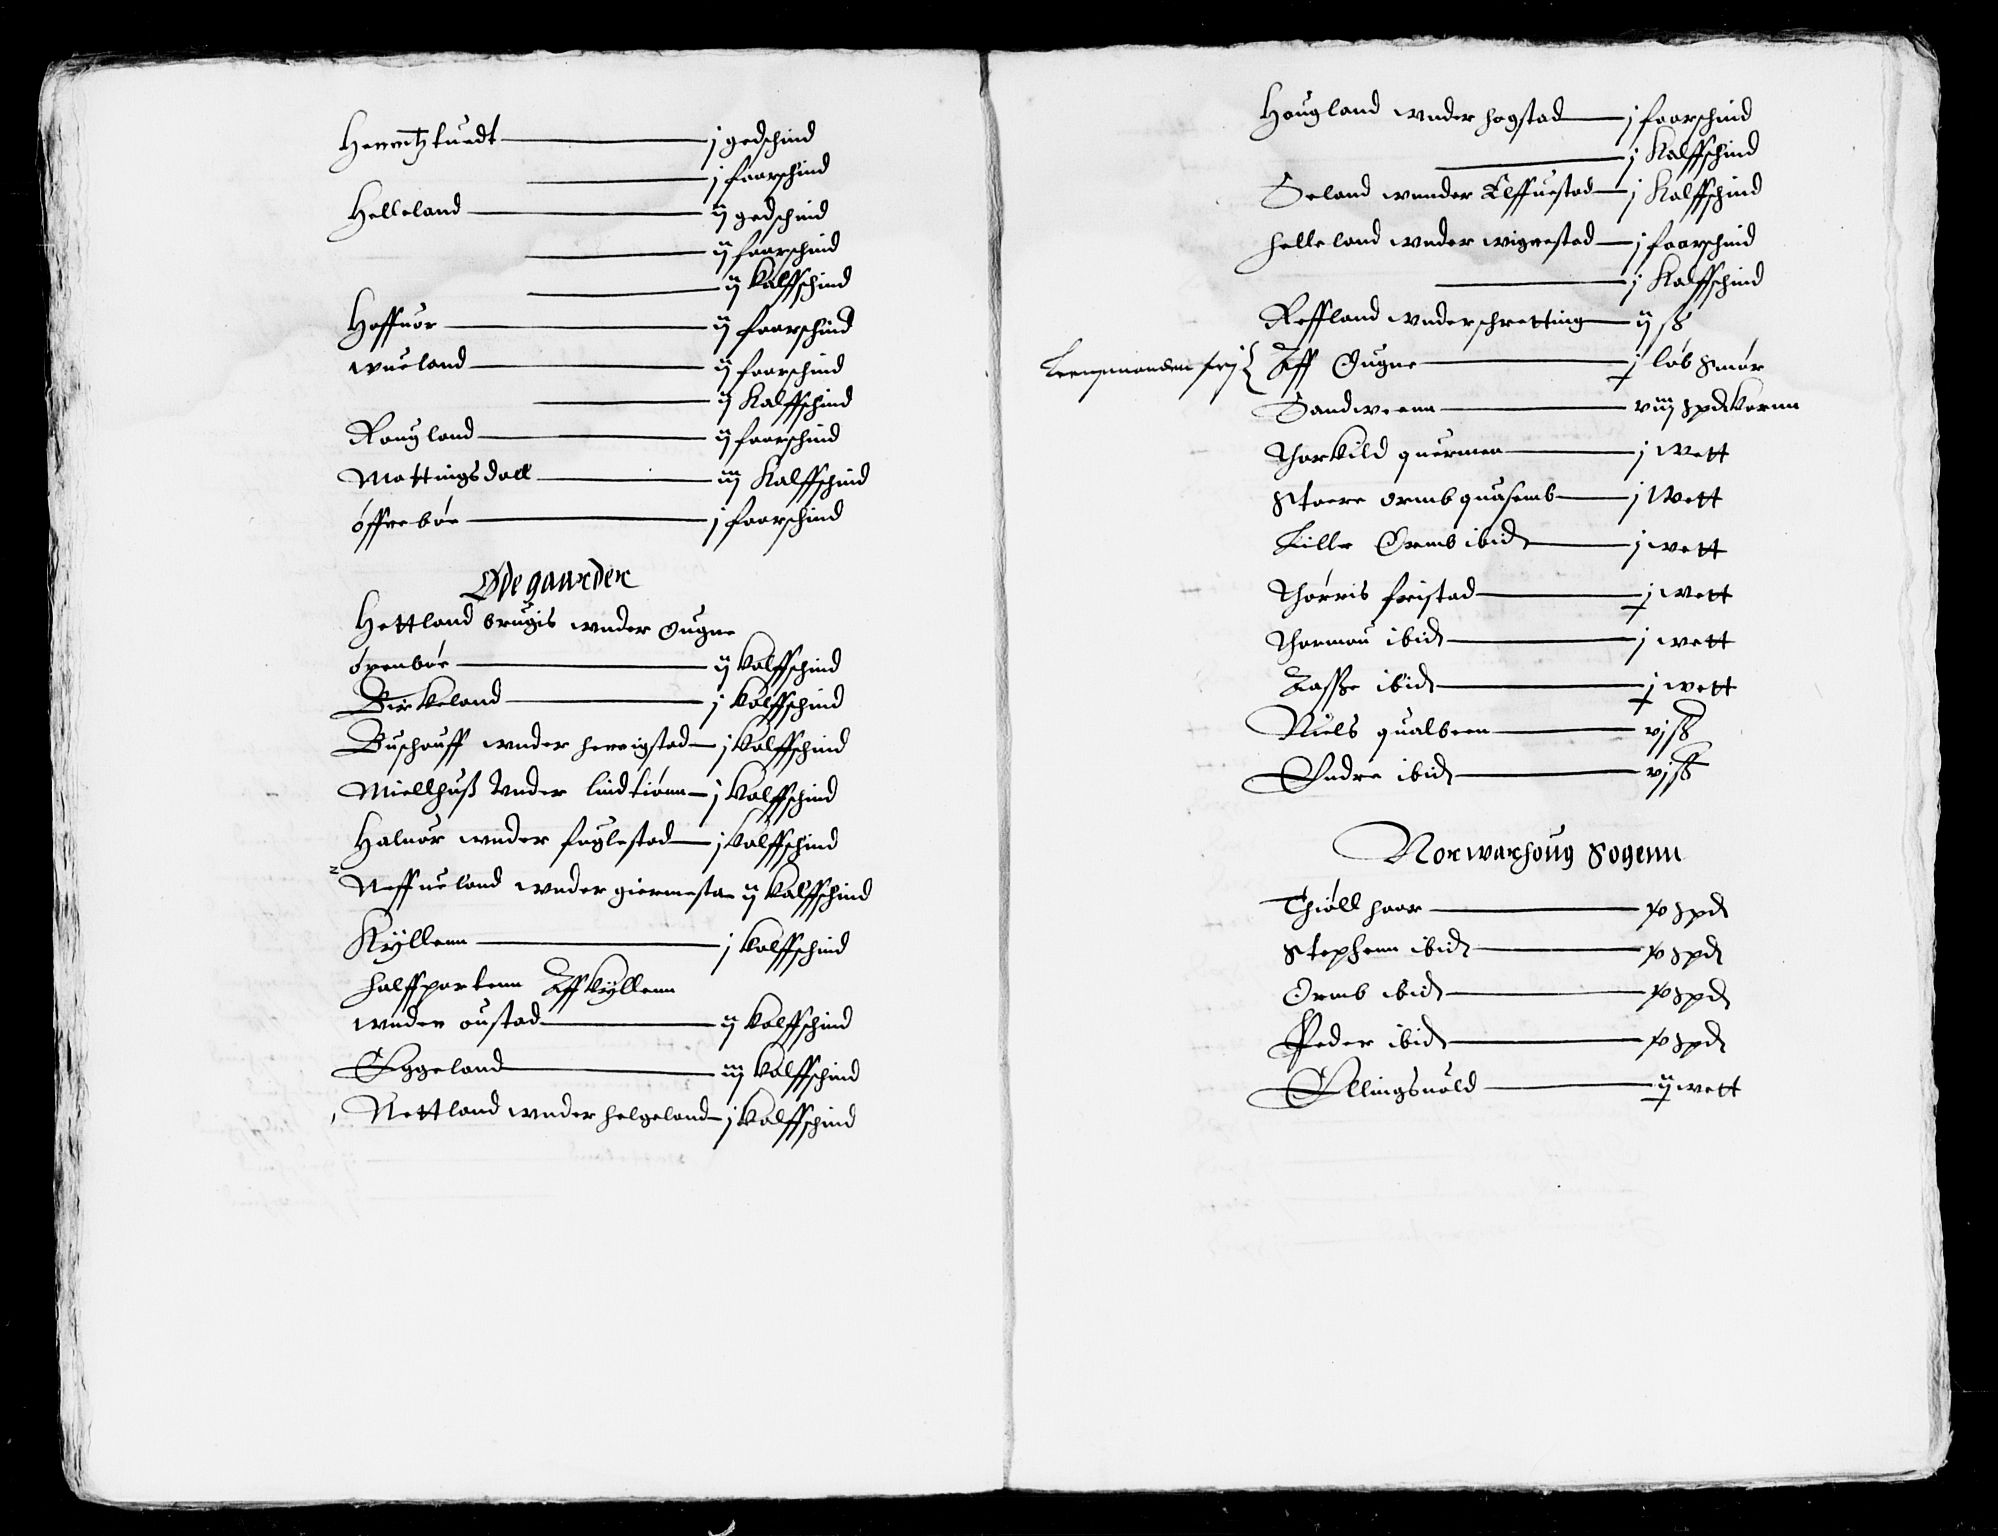 Hemmtztuedt — j gedschind
— j faarschind
Helleland — ij gedschind
— ij faarschind
— ij kalffschind
Haffuor — ij faarschind
wueland — ij faarschind
— ij Kalffschind
Rougland — ij faarschind
Mattingsdall — iij Kalffschind
öffreböe — j faarschind
Øde gaarder
Hettland brugis wnder Ougne
örenböe — ij kalffschind
Birkeland — j kalffschind
Buschouff wnder herrigstad — j kalffschind
Miellhuß Vnder lindtiönn — j kalffschind
Halnor wnder fuglestad — j kalffschind
Neffueland wnder giermesta — ij kalffschind
Kÿllenn — j kalffschind
halffpartenn Aff kÿllenn
wnder oustad — ij kalffschind
Eggeland — iij kalffschind
Nettland wnder helgeland — j kalffschind
Hougland wnder hogstad — j faarschind
— j Kalffschind
Seland wnnder Elffuestad — j Kalffschind
Helleland wnder wigrestad — j faarschind
— j Kalffschind
Reffland wnder schretting — ij ß
Leensmanden frj { Aff Ougne — j löb Smör
Sandween — viij spd kornn
Thorkild quermen — j wett
Store ormb quasemb — j Wett
Lille Ormb ibid — j wett
Thörris fristad — j wett
Thormou ibid — j wett
Lasße ibid — j wett
Niels qualbeen — vj ß
Endre ibid — vj ß
Norwarhoug Sogenn
Thiöll haar — x spd
Stephenn ibid — x spd
Ormb ibid — x spd
Peder ibid — x spd
Ellingsuold — ij wett